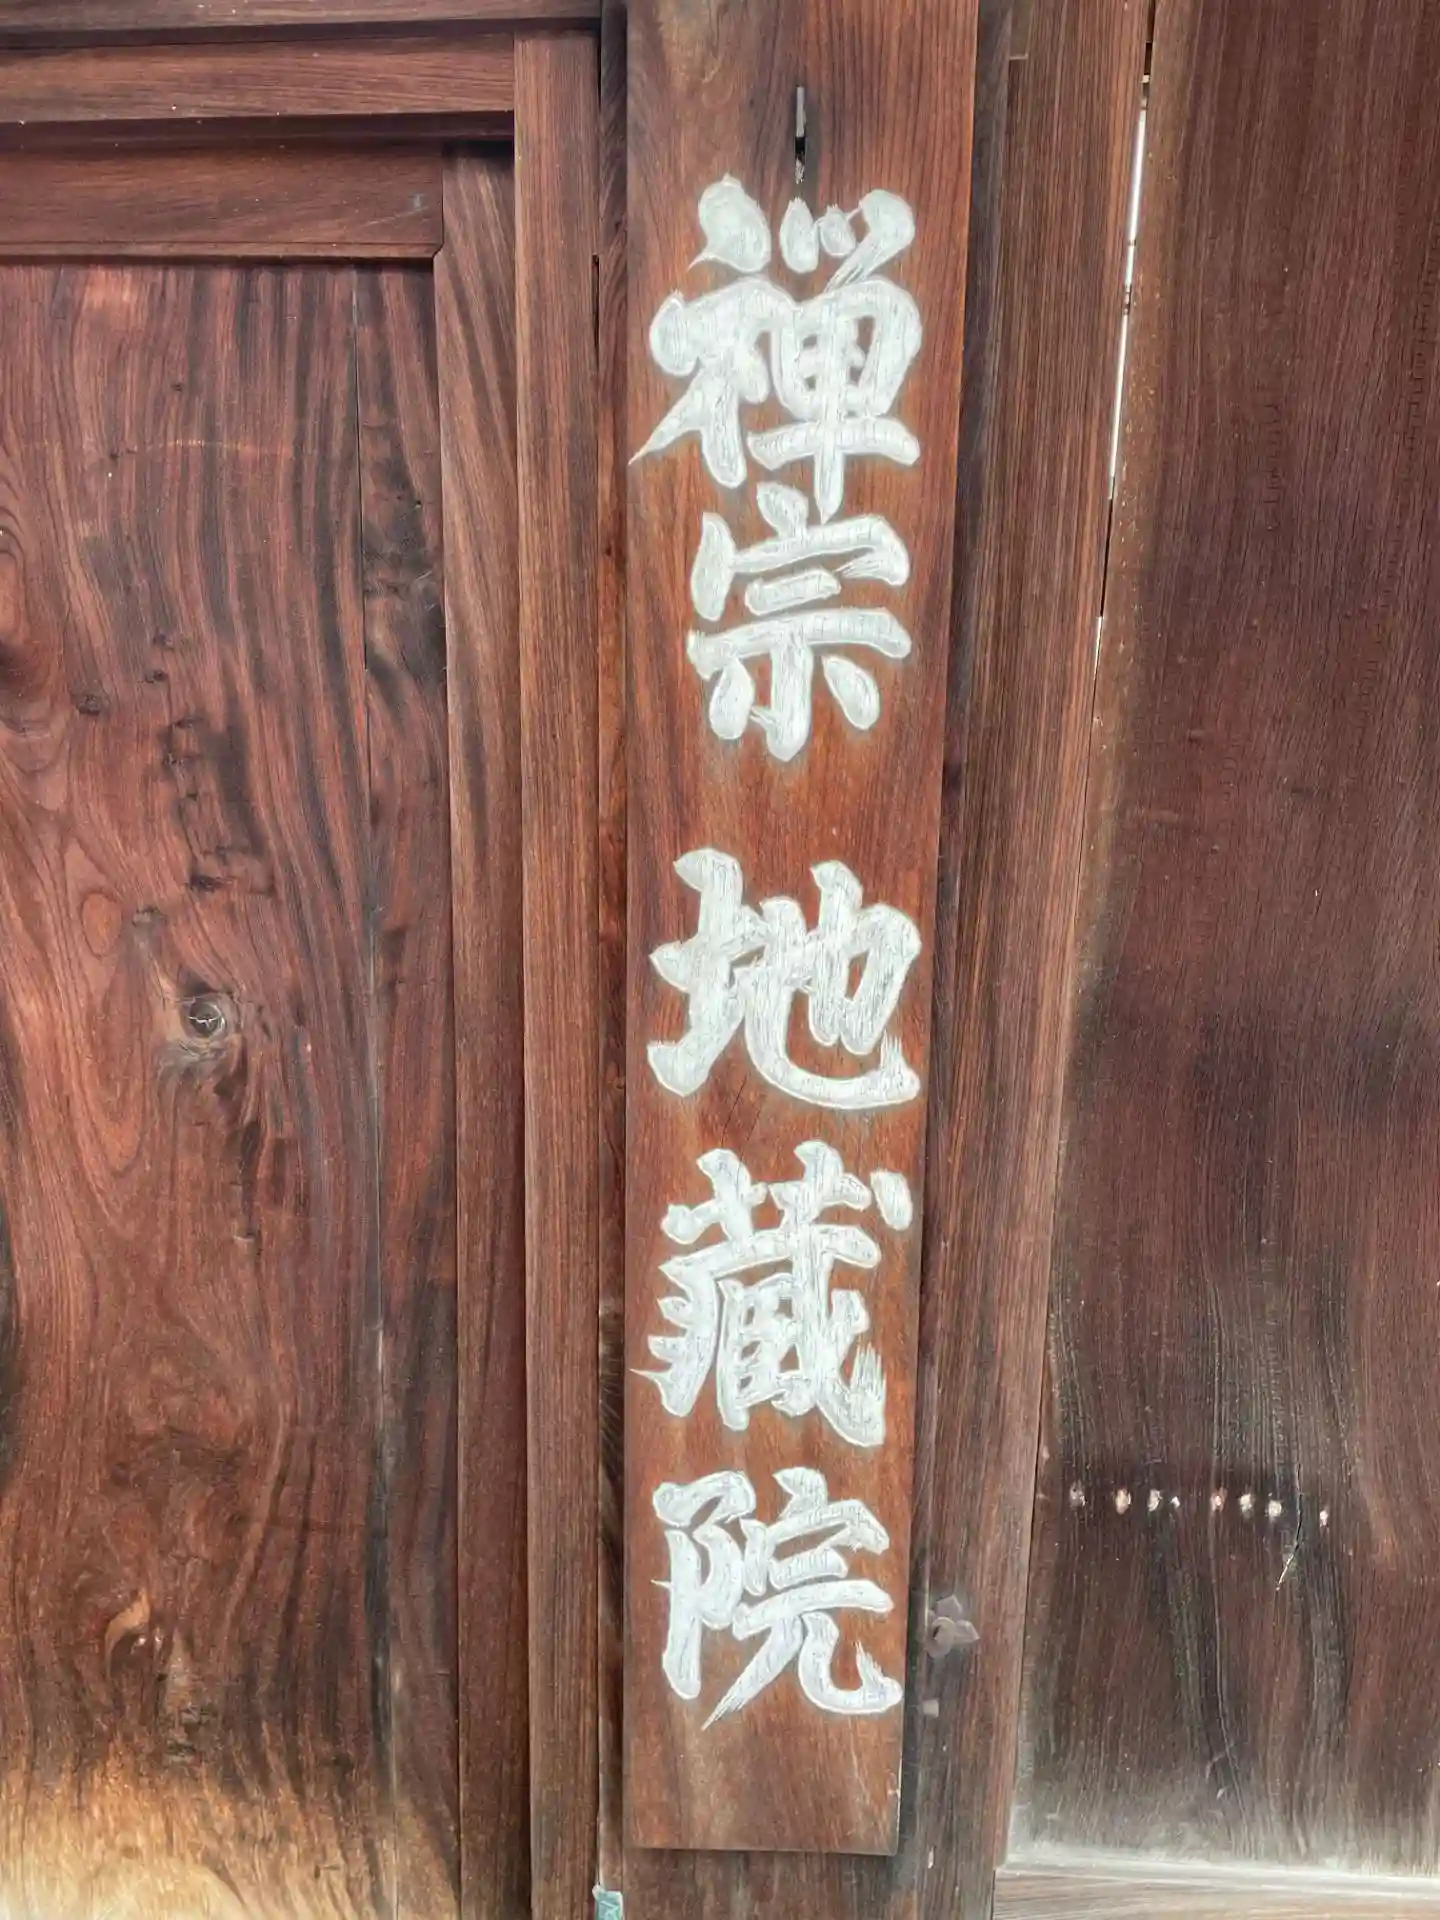 禅宗 地蔵院